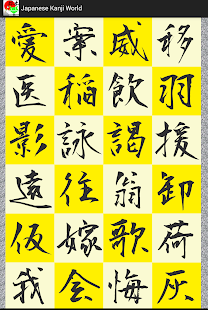 Japanese Kanji World
愛 案 威 移
医 稲 飲 羽
影 詠 謁 援
遠 往 翁 卸
仮 嫁 歌 荷
我 会 悔 灰